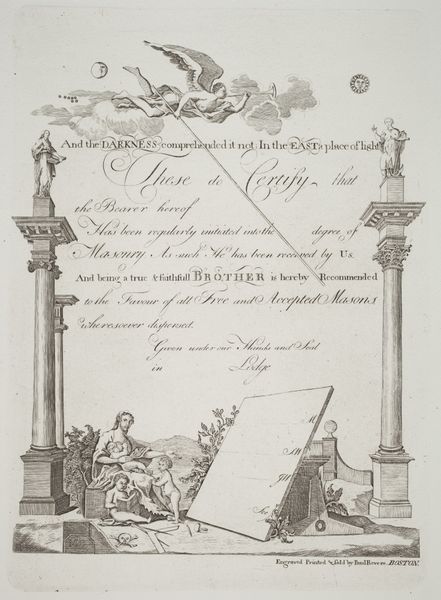 And the DARKNESS comprehended it not In the EAST a place of light
These do Certify that
the Bearer hereof
Has been regularly initiated into the degree of
Masonry As such He has been received by Us
And being a true & faithfull BROTHER is hereby Recommended
to the Favour of all Free and Accepted Masons
wheresoever dispersed.
Given under our Hands and Seal
in Lodge
M
SW
JW
Sec
Engraved Printed & sold by Paul Revere. BOSTON.